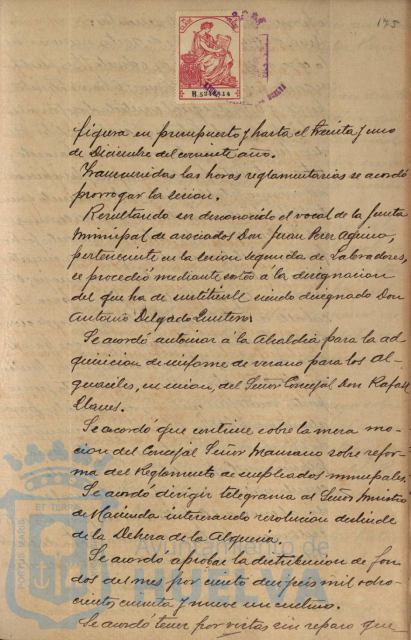 175
figura en presupuesto y hasta el treinta y uno
de Diciembre del corriente año.
Transcurridas las horas reglamentarias se acordó
prorrogar la sesion.
Resultando ser desconocido el vocal de la Junta
Municipal de asociados Don Juan Perez
perteneciente en la sesion segunda de Labradores,
se procedió mediante sorteo á la designacion
del que ha de sustituirle siendo designado Don
Antonio Delgado
Se acordó autorizar á la Alcaldia para la ad-
quisicion de uniforme de verano para los Al-
guaciles, en union, del Señor Concejal Don Rafael
Llanes.
Se acordó que continue sobre la mesa mo-
cion del Concejal Señor Manzano sobre refor-
ma del Reglamento de empleados municipales.
Se acordó dirigir telegrama al Señor Ministro
de Hacienda interesando resolucion deslinde
de la Dehesa de la Alqueria.
Se acordó aprobar la distribucion de fon-
dos del mes por ciento diez y seis mil ocho-
cientos cincuenta y nueve un centimo.
Se acordó tener por vistas sin reparo que
PORTUS MARIS
Ayuntamiento de
HUELVA